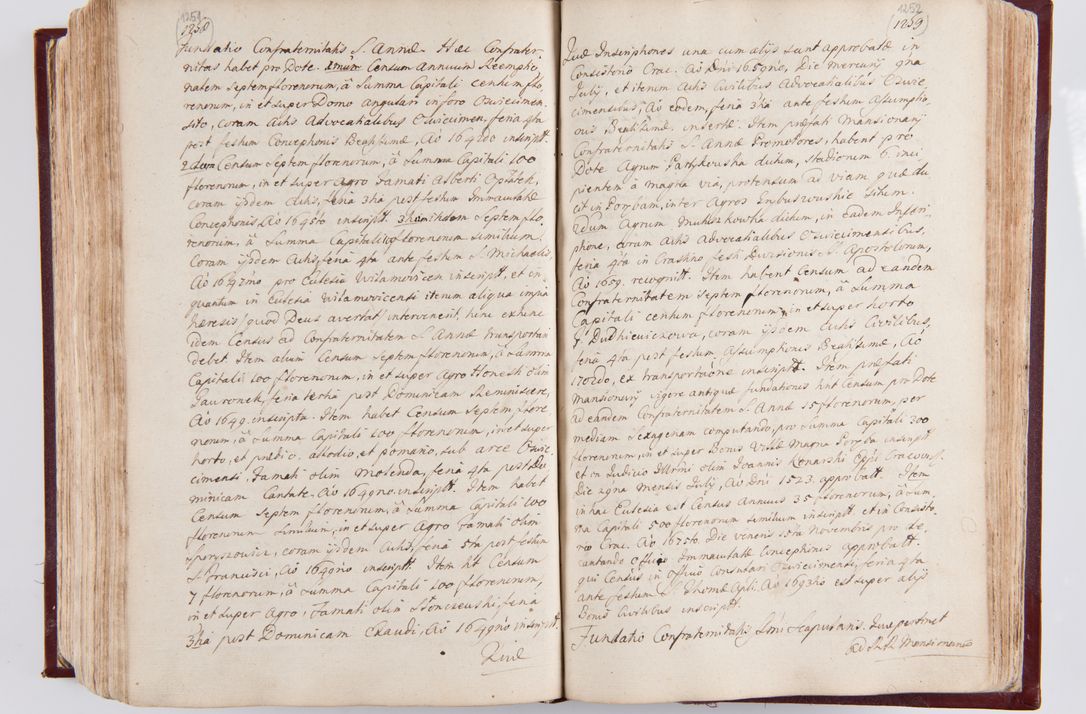 1251
1258
Fundatio Confraternitatis S. Annæ. Hæc Confrater-
nitas habet pro Dote. 1mum Censum Annuum Reempho-
nalem Septem florenorum, à Summa Capitali centum flo-
renorum, in et super Domo angulari in foro Oswiecimen.
sito, coram Actis Advocatialibus Oswiecimen. feria 4ta
post festum Conceptionis Beatissimæ, Aō 1648vo inscriptt.
2dum Censum Septem florenorum, à Summa Capitali 100
florenorum, in et super Agro Famati Alberti Opiłatek,
coram ijsdem Actis, feria 3tia post festum Immaculatæ
Conceptionis Aō 1645to inscriptt. 3tium itidem Septem flo-
renorum, à Summa Capitali 100 florenorum similium,
Coram ijsdem Actis, feria 4ta ante festum S. Michaelis,
Aō 1647mo pro Ecclesia Wilamovicen inscriptt, et in
quantum in Ecclesia Wilamovicensi iterum aliqua impia
hæresis /quod Deus avertat/ intervenerit, hinc ex hunc
idem Census ad Confraternitatem S. Annæ transportari
debet. Item alium Censum Septem florenorum, à Summa
Capitali 100 florenorum, in et super Agro Honesti olim
Gawronek, feria tertia post Dominicam Reminiscere,
Aō 1649. inscripta. Item habet Censum Septem flore-
norum, à Summa Capitali 100 florenorum, in et super
horto, et prædio. allodio, et pomario, sub arce Oswie-
cimensi, Famati olim Molenda, feria 4ta post Do-
minicam Cantate. Aō 1649no. inscriptt. Item habet
Censum Septem florenorum, à Summa Capitali 100
florenorum Similium, in et super Agro Famati olim
Sporyszowic, coram ijsdem Actis, feria 5ta post festum
S. Francisci, Aō 1649no inscriptt Item ht Censum
7 florenorum, à Summa Capitali 100 florenorum,
in et super Agro, Famati olim Słonczewski, feria
3tia post Dominicam Exaudi, Aō 1649no inscriptt.
Quæ
1252
1259
Quæ Inscriptiones una cum alijs sunt approbatæ in
Consistorio Crac. Aō Dni 1659no, Die mercurij 9na
Julij, et iterum Actis Civilibus Advocatialibus Oswie-
cimensibus, Aō eodem, feria 3tia ante festum Assumptio-
nis Beatissimæ. insertæ. Item præfati Mansionarij
Confraternitatis S. Annæ Promotores, habent pro
Dote Agrum Partykowska dictum, stadionum 6. inci-
pientem à magna via, protensum ad viam quæ du-
cit in Porybam, inter Agros Inbuszowskie situm.
2dum Agrum Muhiszkowka dictum, in eadem Inscri-
ptione, coram Actis Advocatialibus Oswiecimensibus,
feria 4ta in Crastino festi Divisionis S. Apostolorum,
Aō 1659. recognitt. Item habent Censum ad eandem
Confraternitatem Septem florenorum, à Summa
Capitali centum florenorum, in et super horto
G. Dudkiewiczowa, coram ijsdem Actis Civilibus,
feria 4ta post festum Assumptionis Beatissimæ, Aō
1702do, ex transportaone inscriptt. Item præfati
Mansionarij vigore antiquæ fundationis hnt Censum pro Dote
ad eandem Confraternitatem S. Annæ 15 florenorum, per
mediam Sexagenam computando, pro Summa Capitali 300
florenorum, in et super Bonis Villæ Magna Poryba inscriptt
et in Judicio Illrmi olim Joannis Konarski Eppi Cracovien.
Die 29na Mensis Julij, Aō Dni 1523. approbatt. Item
in hac Ecclesia est Census Annuus 35 florenorum, à Sum-
ma Capitali 500 florenorum similium inscriptt et in Consisto-
rio Crac. Aō 1675to Die veneris 10ma Novembris pro de-
cantando Officio Immaculatæ Conceptionis approbatt.
qui Census in officio Consulari Oswiecimensi, feria 4ta
ante festum S. Thomæ Apli. Aō 1693tio est super alijs
Bonis Civilibus inscriptt.
Fundatio Confraternitatis Smi Scapularis. Quæ pertinet
ad Mansionarios